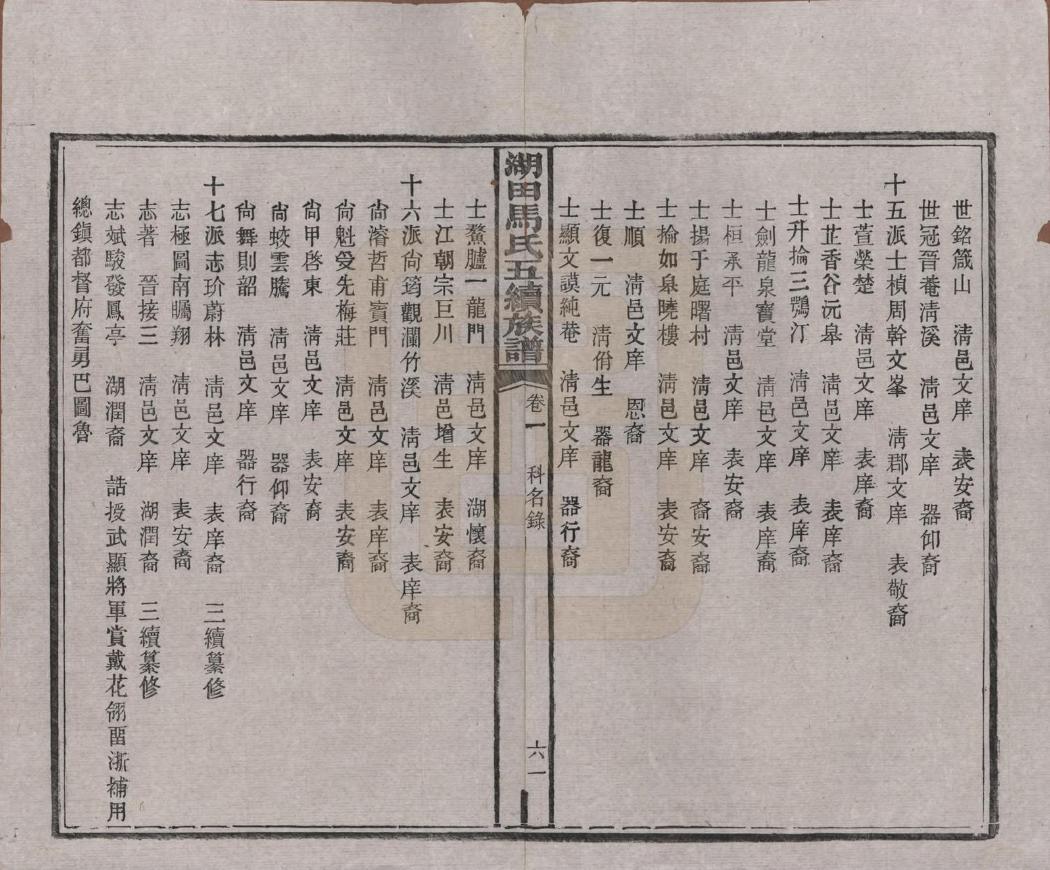 世銘箴山　清邑文庠　表安裔
世冠晉菴清溪　清邑文庠　器仰裔
十五派士楨周幹文峯　清郡文庠　表敬裔
士萱榮楚　清邑文庠　表庠裔
士芷香谷沅皋　清邑文庠　表庠裔
士升掄三鶚汀　清邑文庠　表庠裔
士劍龍泉寶堂　清邑文庠　表庠裔
士桓承平　清邑文庠　表安裔
士揚于庭曙村　清邑文庠　裔安裔
士掄如泉曉樓　清邑文庠　表安裔
士順　清邑文庠　恩裔
士復一元　清佾生　器龍裔
士顯文謨純菴　清邑文庠　器行裔
湖田馬氏五續族譜　卷一　科名錄　六一
士鰲臚一龍門　清邑文庠　湖懷裔
士江朝宗巨川　清邑增生　表安裔
十六派尙筠觀瀾竹溪　清邑文庠　表庠裔
尙濬哲甫寶門　清邑文庠　表庠裔
尙魁受先梅莊　清邑文庠　表安裔
尙甲啓東　清邑文庠　表安裔
尙蛟雲騰　清邑文庠　器仰裔
尙舞則韶　清邑文庠　器行裔
十七派志玠蔚林　清邑文庠　表庠裔　三續纂修
志極圖南矚翔　清邑文庠　表安裔
志著　晉接三　清邑文庠　湖潤裔　三續纂修
志斌駿發鳳亭　湖潤裔　誥授武顯將軍賞戴花翎畱浙補用
總鎭都督府奮勇巴圖魯